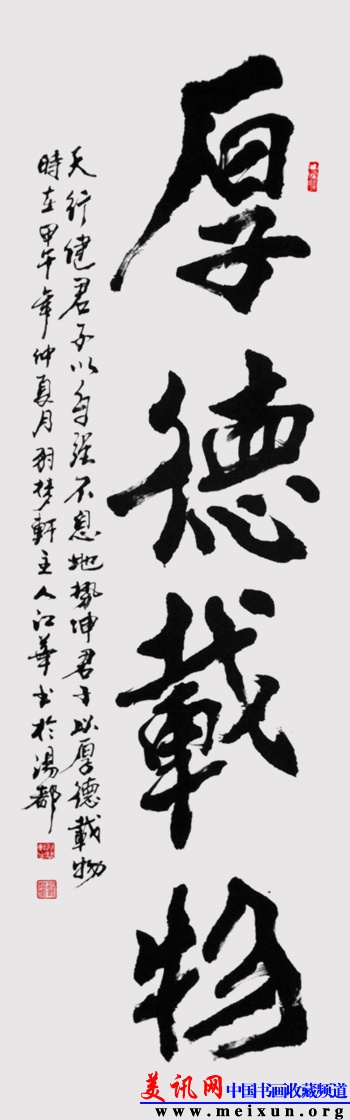 厚德載物
天行健君子以自强不息地勢坤君子以厚德載物
時在甲午年仲夏月羽梦軒主人江華书於湯都
美讯网 中国书画收藏频道
www.meixun.org